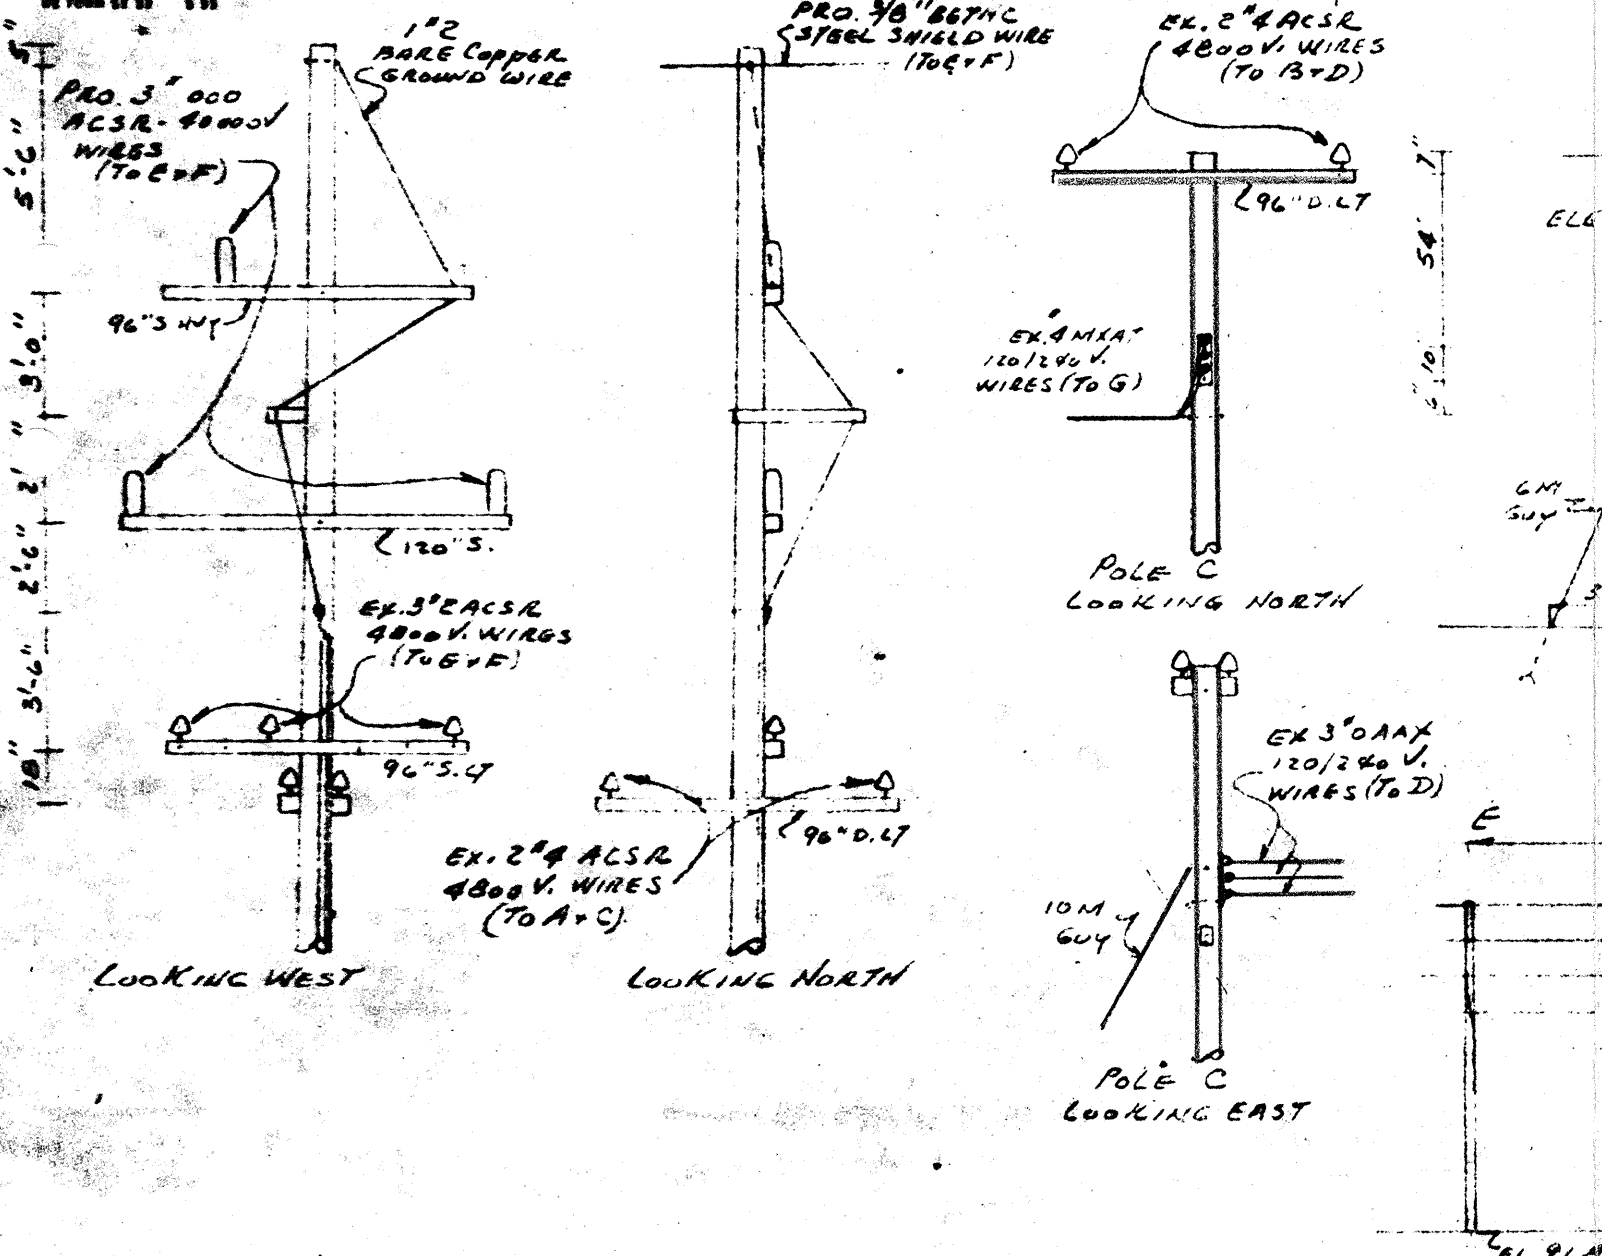 1 #2
BARE COPPER
GROUND WIRE
PRO. 3 # 000
ACSR - 40000V
WIRES
(TO E & F)
5"
5'-6"
3'-0"
2' "
2'-6"
3'-6"
18"
96" S HVY
120" S.
EX. 3 #2 ACSR
4800 V. WIRES
(TO E & F)
96" S. LT
LOOKING WEST
PRO. 3/8" BGTHC
STEEL SHIELD WIRE
(TO E & F)
96" D. LT
EX. 2 #4 ACSR
4800 V. WIRES
(TO A & C)
LOOKING NORTH
EX. 2 #4 ACSR
4800 V. WIRES
(TO B & D)
96" D. LT
7"
54"
10
6"
EX. #4 MXAT
120/240 V.
WIRES (TO G)
POLE C
LOOKING NORTH
EX 3 #0 AAX
120/240 V.
WIRES (TO D)
10 M
GUY
POLE C
LOOKING EAST
ELE
6 M
GUY
3
E